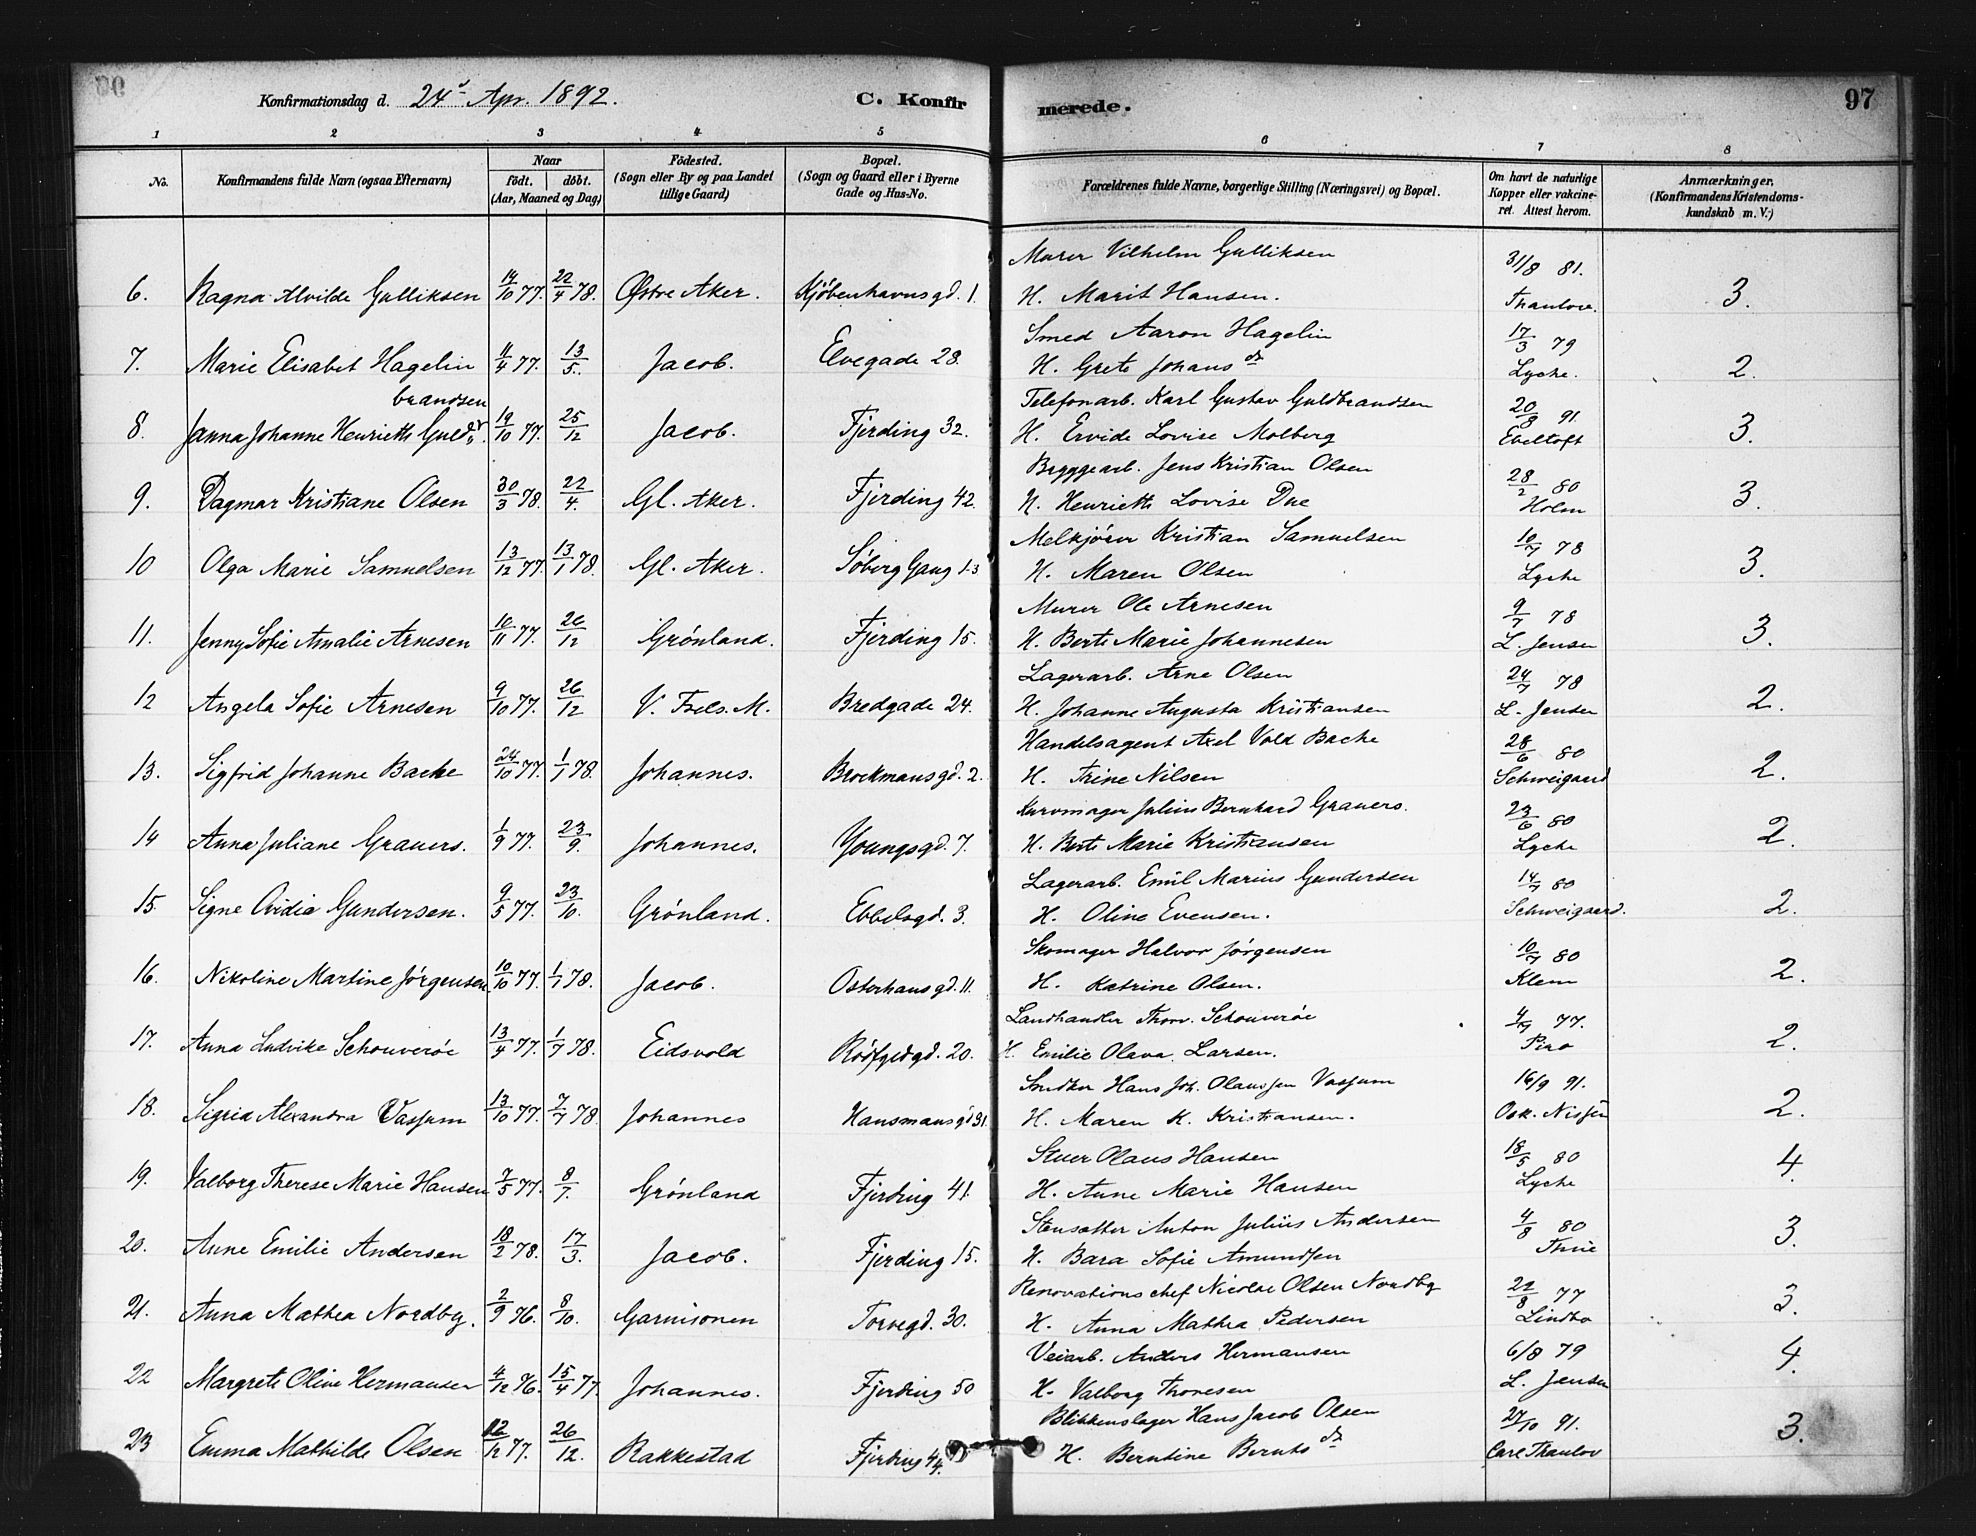 Konfirmationsdag d. 24d Apr. 1892. C. Konfirmerede. 97
1 2 3 4 5 6 7 8
No. Konfirmandens fulde Navn (ogsaa Efternavn) Naar født. døbt. (Aar, Maaned og Dag) Födested. (Sogn eller By og paa Landet tillige Gaard) Bopæl. (Sogn og Gaard eller i Byerne Gade og Hus-No. Forældrenes fulde Navne, borgerlige Stilling (Næringsvei) og Bopæl. Om havt de naturlige Kopper eller vakcineret. Attest herom. Anmærkninger. (Konfirmandens Kristendomskundskab m. V.)
Murer Vilhelm Gulliksen 31/8 81.
6. Ragna Alvilde Gulliksen 14/10 77. 22/4 78. Østre Aker. Kjøbenhavnsgd. 1. H. Marit Hansen. Thaulow. 3.
Smed Aaron Hagelin 17/3 79
7. Marie Elisabet Hagelin 11/4 77. 13/5. Jacob. Elvegade 28. H. Grete Johansdr Lyche. 2.
brandsen Telefonarb. Karl Gustav Guldbrandsen 20/3 91.
8. Janna Johanne Henriette Guld 19/10 77. 25/12 Jacob. Fjerding 32. H. Ervide Lovise Molberg Ebeltoft 3.
Byggearb. Jens Kristian Olsen 28/2 80
9. Dagmar Kristiane Olsen 30/3 78. 22/4. Gl. Aker. Fjerding 42. H. Henriette Lovise Due Holm 3.
Melkjører Kristian Samuelsen 10/7 78
10 Olga Marie Samuelsen 13/12 77. 13/1 78. Gl. Aker. Søberg Gang 13 H. Maren Olsen Lyche 3.
Murer Ole Arnesen 9/7 78
11. Jenny Sofie Amalie Arnesen 16/11 77. 26/12 Grønland. Fjerding 15. H. Berte Marie Johannesen L. Jensen 3.
Lagerarb. Arne Olsen 24/7 78
12 Angela Sofie Arnesen 9/10 77. 26/12 V. Frels. M. Bredgade 24. H. Johanne Augusta Kristiansen L. Jensen 2.
Handelsagent Axel Vold Backe 28/6 80
13. Sigfrid Johanne Backe 24/10 77. 1/1 78. Johannes. Brockmansgd. 2. H. Trine Nilsen Schweigaard 2.
Kurvmager Julius Bernhard Grauers. 23/6 80
14 Anna Juliane Grauers. 1/9 77. 23/9. Johannes. Youngsgd. 7. H. Berte Marie Kristiansen Lyche 2.
Lagerarb. Emil Marius Gundersen 14/7 80
15. Signe Ovidia Gundersen. 9/5 77. 23/10. Grønland. Ebbelsgd. 3. H. Oline Evensen. Schweigaard. 2.
Skomager Halvor Jørgensen 10/7 80
16. Nikoline Martine Jørgensen 10/10 77. 1/1 78. Jacob. Osterhausgd. 11. H. Katrine Olsen. Klem 2.
Landhandler Thorv. Schouverøe 4/9 77.
17. Anna Ludvike Schouverøe 13/4 77. 1/7 78. Eidsvold Rødfyldgd. 20. H. Emilie Olava Larsen. Piro 2.
Snedker Hans Joh. Olaussen Vasjum 16/9 91.
18. Sigrid Alexandra Vasjum 13/10 77. 7/7 78. Johannes Hausmansgd 31. H. Maren K. Kristiansen. Osk. Nissen 2.
Stuer Olaus Hansen 18/5 80
19. Valborg Therese Marie Hansen 7/5 77. 8/7. Grønland Fjerding 41. H. Anne Marie Hansen Lyche 4.
Stensætter Anton Julius Andersen 4/8 80
20. Anne Emilie Andersen 18/2 78. 17/3. Jacob. Fjerding 15. H. Bara Sofie Amundsen Thue 3.
Renovationschef Nicolai Olsen Nordby 22/8 77
21. Anna Mathea Nordby. 2/9 76. 8/10. Garnisonen Torvegd. 30. H. Anna Mathea Pedersen Lindbo 3.
Veiarb. Anders Hermansen 6/8 79
22 Margrete Olive Hermansen 4/12 76. 15/4 77. Johannes. Fjerding 50 H. Valborg Thoresen L. Jensen 4.
Blikkenslager Hans Jacob Olsen 27/10 91.
23 Emma Mathilde Olsen 12/12 77. 26/12. Rakkestad Fjerding 44. H. Berntine Berntsdr Carl Thaulow 3.